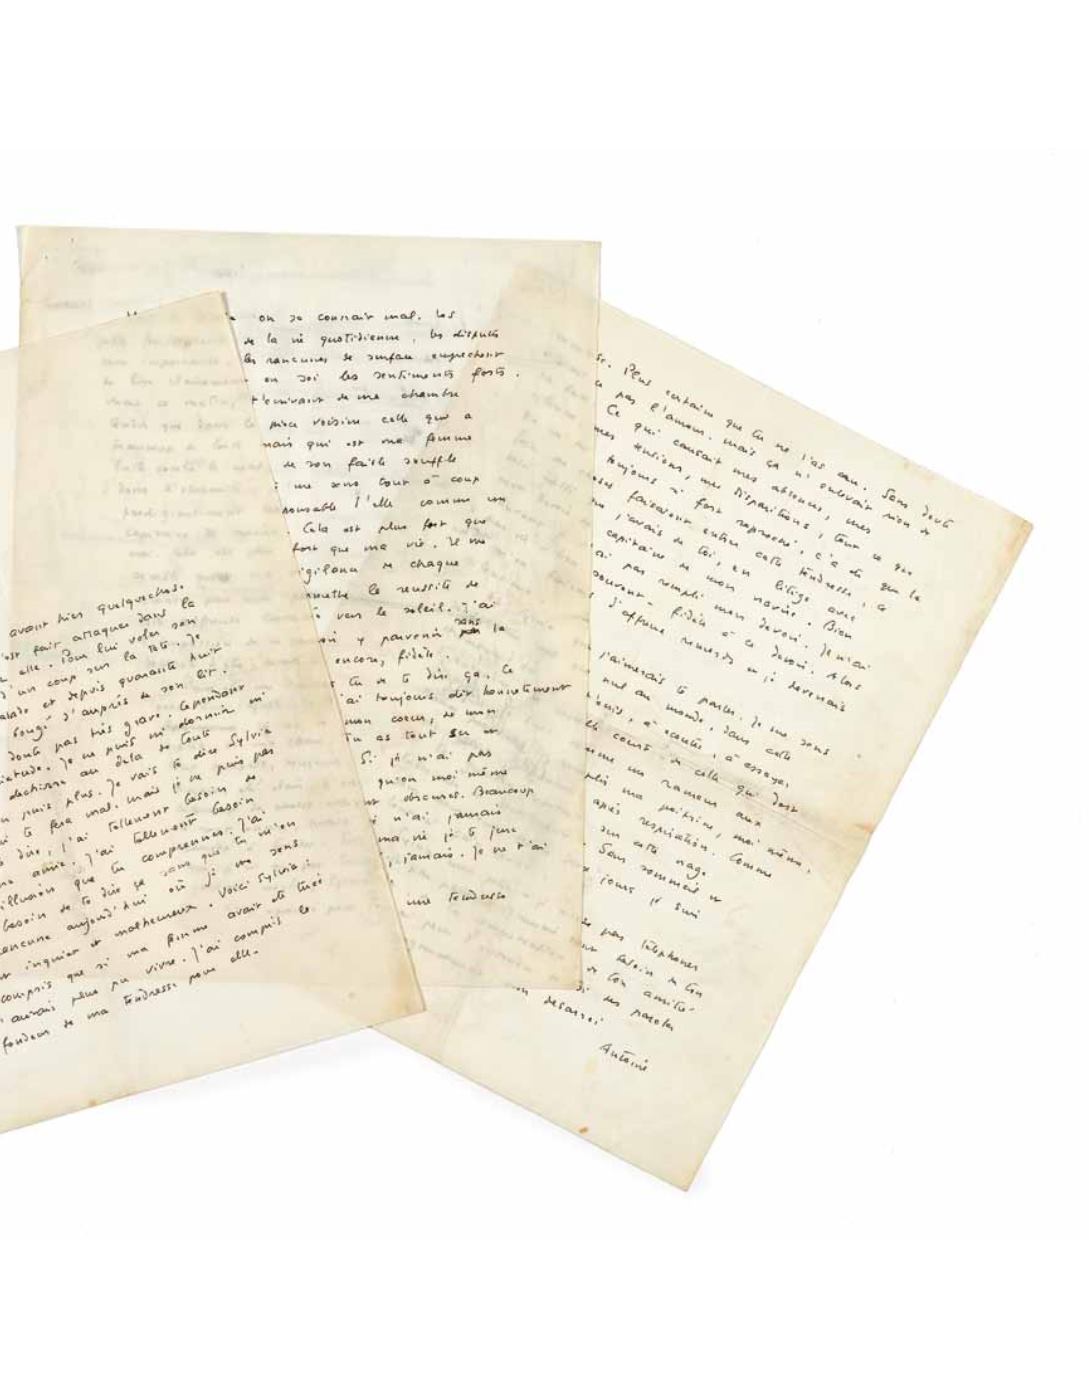 avant hier quelquechose.
s'est fait attaquer dans la
elle. Pour lui voler son
d'un coup sur la tête. Je
malade et depuis quarante huit
bougé d'auprès de son lit.
doute pas très grave. Cependant
Je ne puis ni dormir ni
au delà de toute
puis plus. Je vais te dire Sylvia
te fera mal. mais je ne puis pas
dire, j'ai tellement besoin de
amie. J'ai tellement besoin
l'illusion que tu comprennes. J'ai
besoin de te dire ça sans que tu m'en
rancune aujourd'hui où je me sens
inquiet et malheureux. Voici Sylvia :
compris que si ma femme avait été tuée
aurais plus pu vivre. J'ai compris la
de ma tendresse pour elle.
on se connait mal. Les
de la vie quotidienne, les disputes
les rancunes de surface empechent
en soi les sentiments forts.
t'écrivant de ma chambre
pièce voisine celle qui a
mais qui est ma femme
de son faible souffle
me sens tout à coup
responsable d'elle comme un
Cela est plus fort que
fort que ma vie. Je me
vigilance de chaque
la reussite de
vers le soleil. J'ai
y parvenir sans la
encore, fidèle.
tu de te dire ça. Ce
j'ai toujours dit honnetement
mon coeur, de mon
Tu as tout su
Si je n'ai pas
qu'en moi même
obscures. Beaucoup
n'ai jamais
ma vie je te jure
jamais. Je ne t'ai
une tendresse
Plus certaine que tu ne l'as cru. Sans doute
pas l'amour. mais ça n'enlevait rien de
Ce qui causait mes absences, mes
mes tensions, mes disparitions, tout ce que
toujours si fort reproché, c'a été que le
faisaient entrer cette tendresse, ce
j'avais de toi, en litige avec
capitaine de mon navire. Bien
pas rempli mon devoir. Je n'ai
souvent fidèle à ce devoir. Alors
d'affreux remords et je devenais
j'aimerais te parler. Je me sens
seul au monde, dans cette
à écouter, à essayer
cours de celle qui dort
comme un rameur aux
ma poitrine, moi même,
après respiration. Comme
sur cette nage.
Sans sommeil et
jours je suis
pas téléphoner
besoin de ton
de ton amitié
de tes paroles
desarroi
Antoine